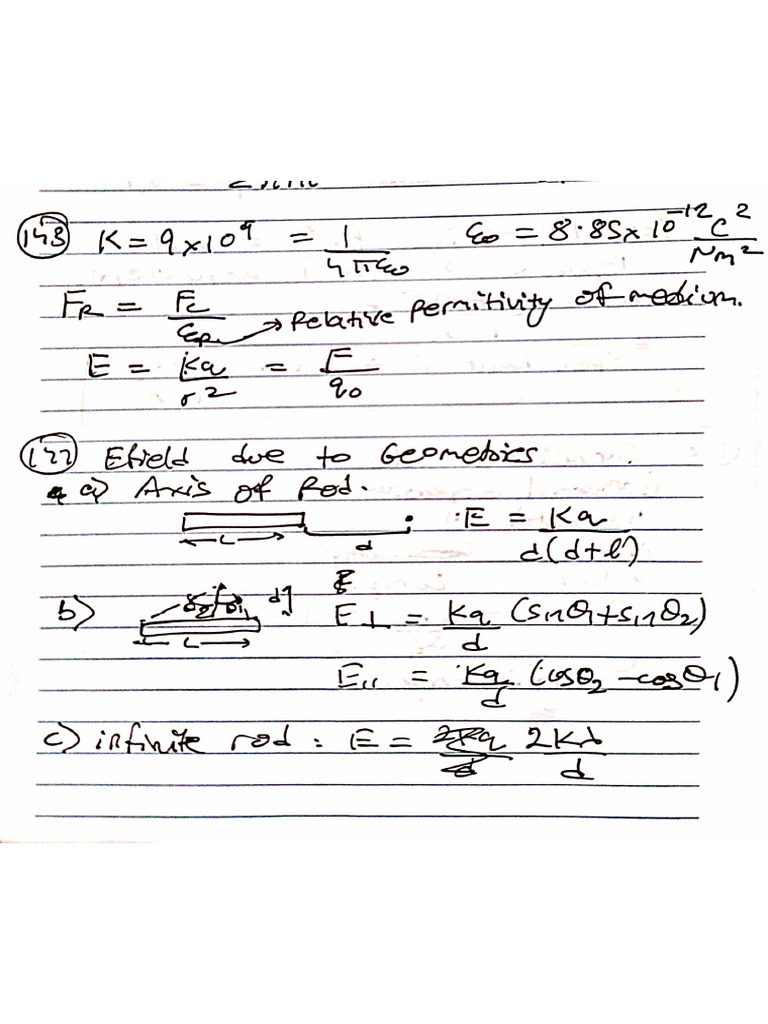 (143) K = 9×10⁹ = 1/4πε₀ ε₀ = 8.85×10⁻¹² C²/Nm²
F_R = F_C/ε_R → Relative permitivity of medium.
E = Kq/r² = F/q₀
Efield due to Geometries
a) Axis of Rod.
L d E = Kq/d(d+l)
b) θ₂ θ₁ d L E⊥ = Kq/d (sinθ₁+sinθ₂)
E,, = Kq/d (cosθ₂ – cosθ₁)
c) infinite rod : E = 2Kλ/d